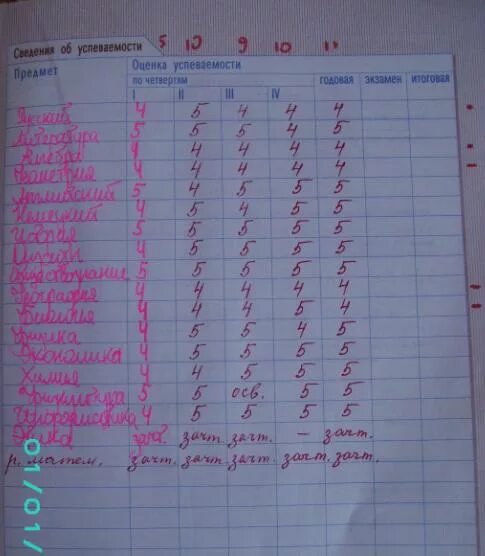 Сведения об успеваемости 5 10 9 10 11
Предмет Оценка успеваемости
по четвертям годовая экзамен итоговая
I II III IV
Русский 4 5 4 4 4
Литература 5 5 5 4 5
Алгебра 4 4 4 4 4
Геометрия 4 4 4 4 4
Английский 5 4 5 5 5
Немецкий 4 5 4 5 5
История 5 5 5 5 5
4 5 5 5 5
Обществознание 5 5 5 5 5
География 4 4 4 4 4
4 4 4 5 4
Физика 4 5 5 4 5
Экономика 4 5 5 5 5
Химия 4 4 5 5 5
Физкультура 5 5 осв. 5 5
Информатика 4 5 5 5 5
зачт. зачт. зачт. – зачт.
р. матем. зачт. зачт. зачт. зачт. зачт.
01/01/